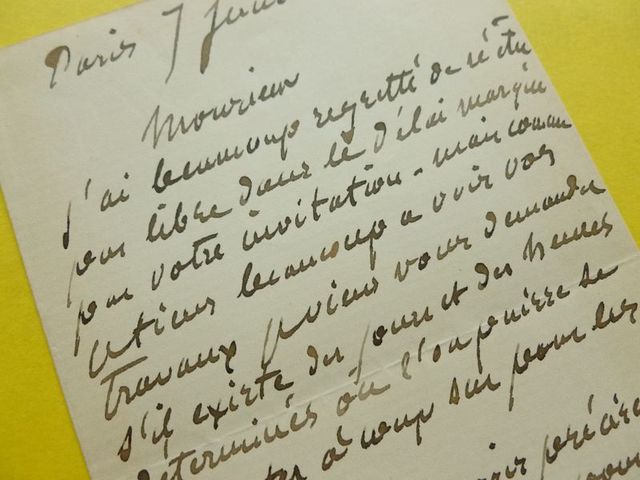 Paris 7
Monsieur
J'ai beaucoup regretté de n'être
pas libre dans le délai marqué
par votre invitation - mais comme
je tiens beaucoup a voir vos
travaux je viens vous demander
s'il existe des jours et des heures
déterminés où l'on puisse se
à coup sur pour les